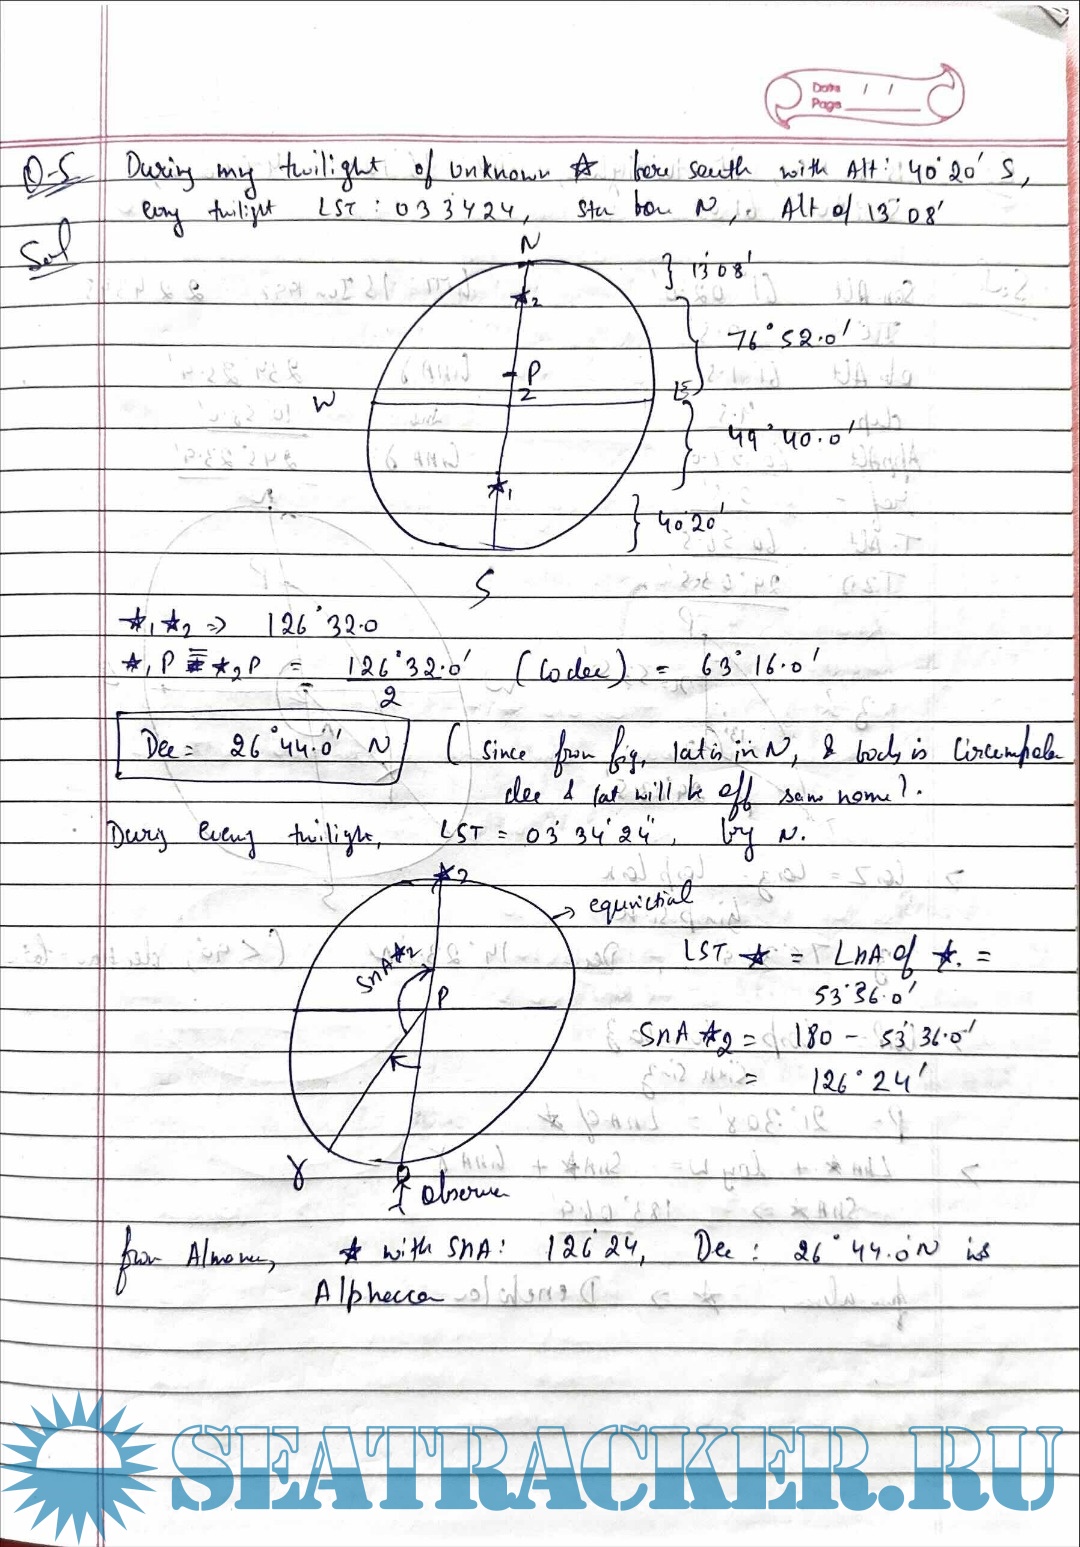 Date / /
Page
Q-5 During mng twilight of unknown ☆ bore south with Alt: 40°20' S,
evng twilight LST: 033424, Star bore N, Alt of 13°08'
Sol
N
} 13°08'
☆2
76°52.0'
P
Z
W
E
49°40.0'
☆1
} 40°20'
S
☆1☆2 => 126°32.0
☆1P = ☆2P = 126°32.0' / 2 (Co dec) = 63°16.0'
Dec = 26°44.0' N ( Since from fig, lat is in N, & body is Circumpolar
dec & lat will be off same name).
During eveng twilight, LST = 03°34'24", by N.
☆2
→ equinictial
SHA☆2
P
LST ☆ = LHA of ☆. =
53°36.0'
SHA ☆2 = 180 - 53°36.0'
= 126°24'
γ
Observer
from Almanac, ☆ with SHA: 126°24, Dec: 26°44.0'N is
Alphecca
SEATRACKER.RU